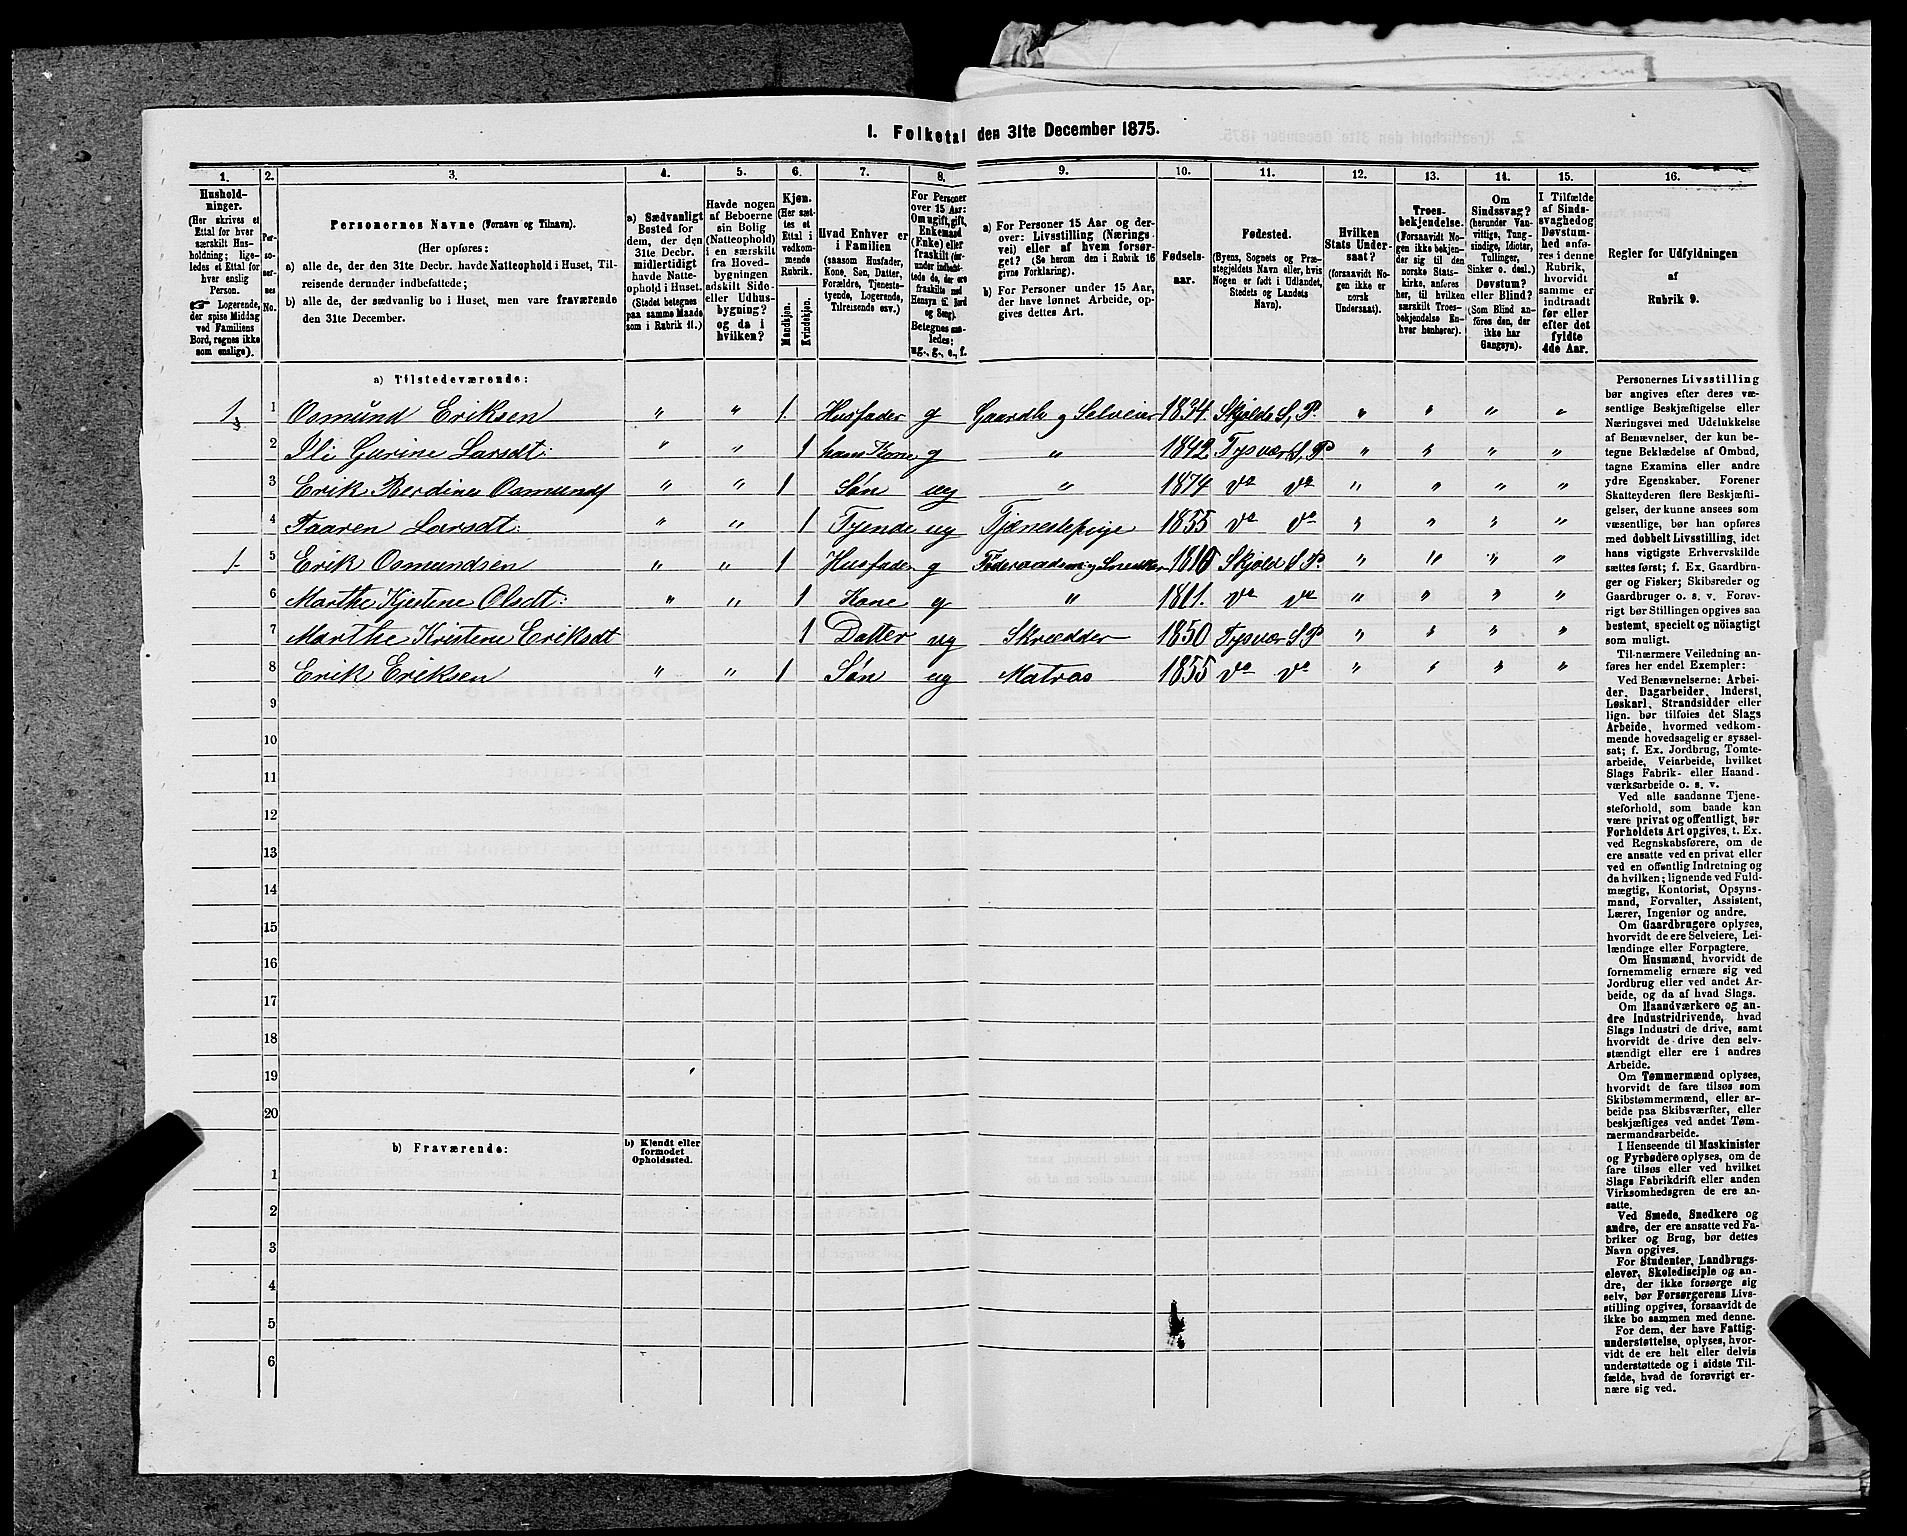 1. Folketal den 31te December 1875.
1. 2. 3. 4. 5. 6. 7. 8. 9. 10. 11. 12. 13. 14. 15. 16.
Husholdninger.
(Her skrives et
Ettal for hver
særskilt Husholdning;
ligeledes et Ettal for
hver enslig
Person.
☛ Logerende,
der spise Middag
ved Familiens
Bord, regnes ikke
som enslige).
Personernes No.
Personernes Navne (Fornavn og Tilnavn).
(Her opføres:
a) alle de, der den 31te Decbr. havde Natteophold i Huset, Tilreisende
derunder indbefattede;
b) alle de, der sædvanlig bo i Huset, men vare fraværende
den 31te December.
a) Sædvanligt
Bosted for
dem, der den
31te Decbr.
midlertidigt
havde Natteophold
i Huset.
(Stedet betegnes
paa samme Maade
som i Rubrik 11.)
Havde nogen
af Beboerne
sin Bolig
(Natteophold)
i en særskilt
fra Hovedbygningen
adskilt Side-
eller Udhusbygning?
og da i
hvilken?
Kjøn.
(Her sættes
et
Ettal i
vedkommende
Rubrik.
Mandkjøn.
Kvindekjøn.
Hvad Enhver er
i Familien
(saasom Husfader,
Kone, Søn, Datter,
Forældre, Tjenestetyende,
Logerende,
Tilreisende osv.)
For Personer
over 15 Aar:
Om ugift, gift,
Enkemand
(Enke) eller
fraskilt (herunder
indbefattede
de, der ere
fraskilte med
Hensyn til Bord
og Seng).
Betegnes saaledes:
ug., g., e., f.
a) For Personer 15 Aar og derover:
Livsstilling (Næringsvei)
eller af hvem forsørget?
(Se herom den i Rubrik 16
givne Forklaring).
b) For Personer under 15 Aar,
der have lønnet Arbeide, opgives
dettes Art.
Fødselsaar.
Fødested.
(Byens, Sognets og Præstegjeldets
Navn eller, hvis
Nogen er født i Udlandet,
Stedets og Landets
Navn).
Hvilken
Stats Undersaat?
(forsaavidt Nogen
ikke er
norsk
Undersaat).
Troesbekjendelse.
(Forsaavidt Nogen
ikke bekjender
sig til den
norske Statskirke,
anføres
her, til hvilken
særskilt Troesbekjendelse
Enhver
henhører).
Om
Sindssvag?
(herunder Vanvittige,
Tungsindige,
Idioter,
Tullinger,
Sinker o. desl.)
Døvstum?
eller Blind?
(Som Blind anføres
den, der
ikke har
Gangsyn).
I Tilfælde
af Sindssvaghed
og
Døvstumhed
anføres
i denne
Rubrik,
hvorvidt
samme er
indtraadt
før eller
efter det
fyldte
4de Aar.
Regler for Udfyldningen
af
Rubrik 9.
a) Tilstedeværende:
1 1 Osmund Eriksen " " 1. Husfader g Gaardb. og Selveier 1834. Skjolds S, P. " " " "
2 Ili Gurine Larsdt: " " 1 hans Kone g " 1842 Tysvær S, P " " " "
3 Erik Berdines Osmunds " " 1 Søn ug " 1874 do do " " " "
4 Taaren Larsdt: " " 1 Tyende ug Tjenestepige 1855 do do " " " "
1 5 Erik Osmundsen " " 1 Husfader g Føderaadsm. og Snedker Skjold S P. " " " "
6 Marthe Kjestene Olsdt: " " 1 Kone g " 1811. do do " " " "
7 Marthe Kristene Eriksdt 1 Datter ug Skrædder 1850 Tysvær S P " " " "
8 Erik Eriksen " " 1 Søn ug Matros 1855 do do " " " "
9
10
11
12
13
14
15
16
17
18
19
20
b) Fraværende:
b) Kjendt eller
formodet
Opholdssted.
1
2
3
4
5
6
Personernes Livsstilling
bør angives efter deres væsentlige
Beskjæftigelse eller
Næringsvei med Udelukkelse
af Benævnelser, der kun betegne
Beklædelse af Ombud,
tagne Examina eller andre
ydre Egenskaber. Forener
Skatteyderen flere Beskjæftigelser,
der kunne ansees som
væsentlige, bør han opføres
med dobbelt Livsstilling, idet
hans vigtigste Erhvervskilde
sættes først; f. Ex. Gaardbruger
og Fisker; Skibsreder og
Gaardbruger o. s. v. Forøvrigt
bør Stillingen opgives saa
bestemt, specielt og nøiagtigt
som muligt.
Til nærmere Veiledning anføres
her endel Exempler:
Ved Benævnelserne: Arbeider,
Dagarbeider, Inderst,
Løskarl, Strandsidder eller
lign. bør tilføies det Slags
Arbeide, hvormed vedkommende
hovedsagelig er sysselsat;
f. Ex. Jordbrug, Tomtearbeide,
Veiarbeide, hvilket
Slags Fabrik- eller Haandværksarbeide
o. s. v.
Ved alle saadanne Tjenesteforhold,
som baade kan
være privat og offentligt, bør
Forholdets Art opgives, t. Ex.
ved Regnskabsførere, om de
ere ansatte ved en privat eller
ved en offentlig Indretning og
da hvilken; lignende ved Fuldmægtig,
Kontorist, Opsynsmand,
Forvalter, Assistent,
Lærer, Ingeniør og andre.
Om Gaardbrugere oplyses,
hvorvidt de ere Selveiere, Leilændinge
eller Forpagtere.
Om Husmænd, hvorvidt de
fornemmelig ernære sig ved
Jordbrug eller ved andet Arbeide,
og da af hvad Slags.
Om Haandværkere og andre
Industridrivende, hvad
Slags Industri de drive, samt
hvorvidt de drive den selvstændigt
eller ere i andres
Arbeide.
Om Tømmermænd oplyses,
hvorvidt de fare tilsøs som
Skibstømmermænd, eller arbeide
paa Skibsværfter, eller
beskjæftiges ved andet Tømmermandsarbeide.
I Henseende til Maskinister
og Fyrbødere oplyses, om de
fare tilsøs eller ved hvilket
Slags Fabrikdrift eller anden
Virksomhedsgren de ere ansatte.
Ved Smede, Snedkere og
andre, der ere ansatte ved Fabriker
og Brug, bør dettes
Navn opgives.
For Studenter, Landbrugselever,
Skoledisciple og andre,
der ikke forsørge sig
selv, bør Forsørgerens Livsstilling
opgives, forsaavidt de
ikke bo sammen med denne.
For dem, der have Fattigunderstøttelse,
oplyses, hvorvidt
de ere helt eller delvis
understøttede og i sidste Tilfælde,
hvad de forøvrigt ernære
sig ved.